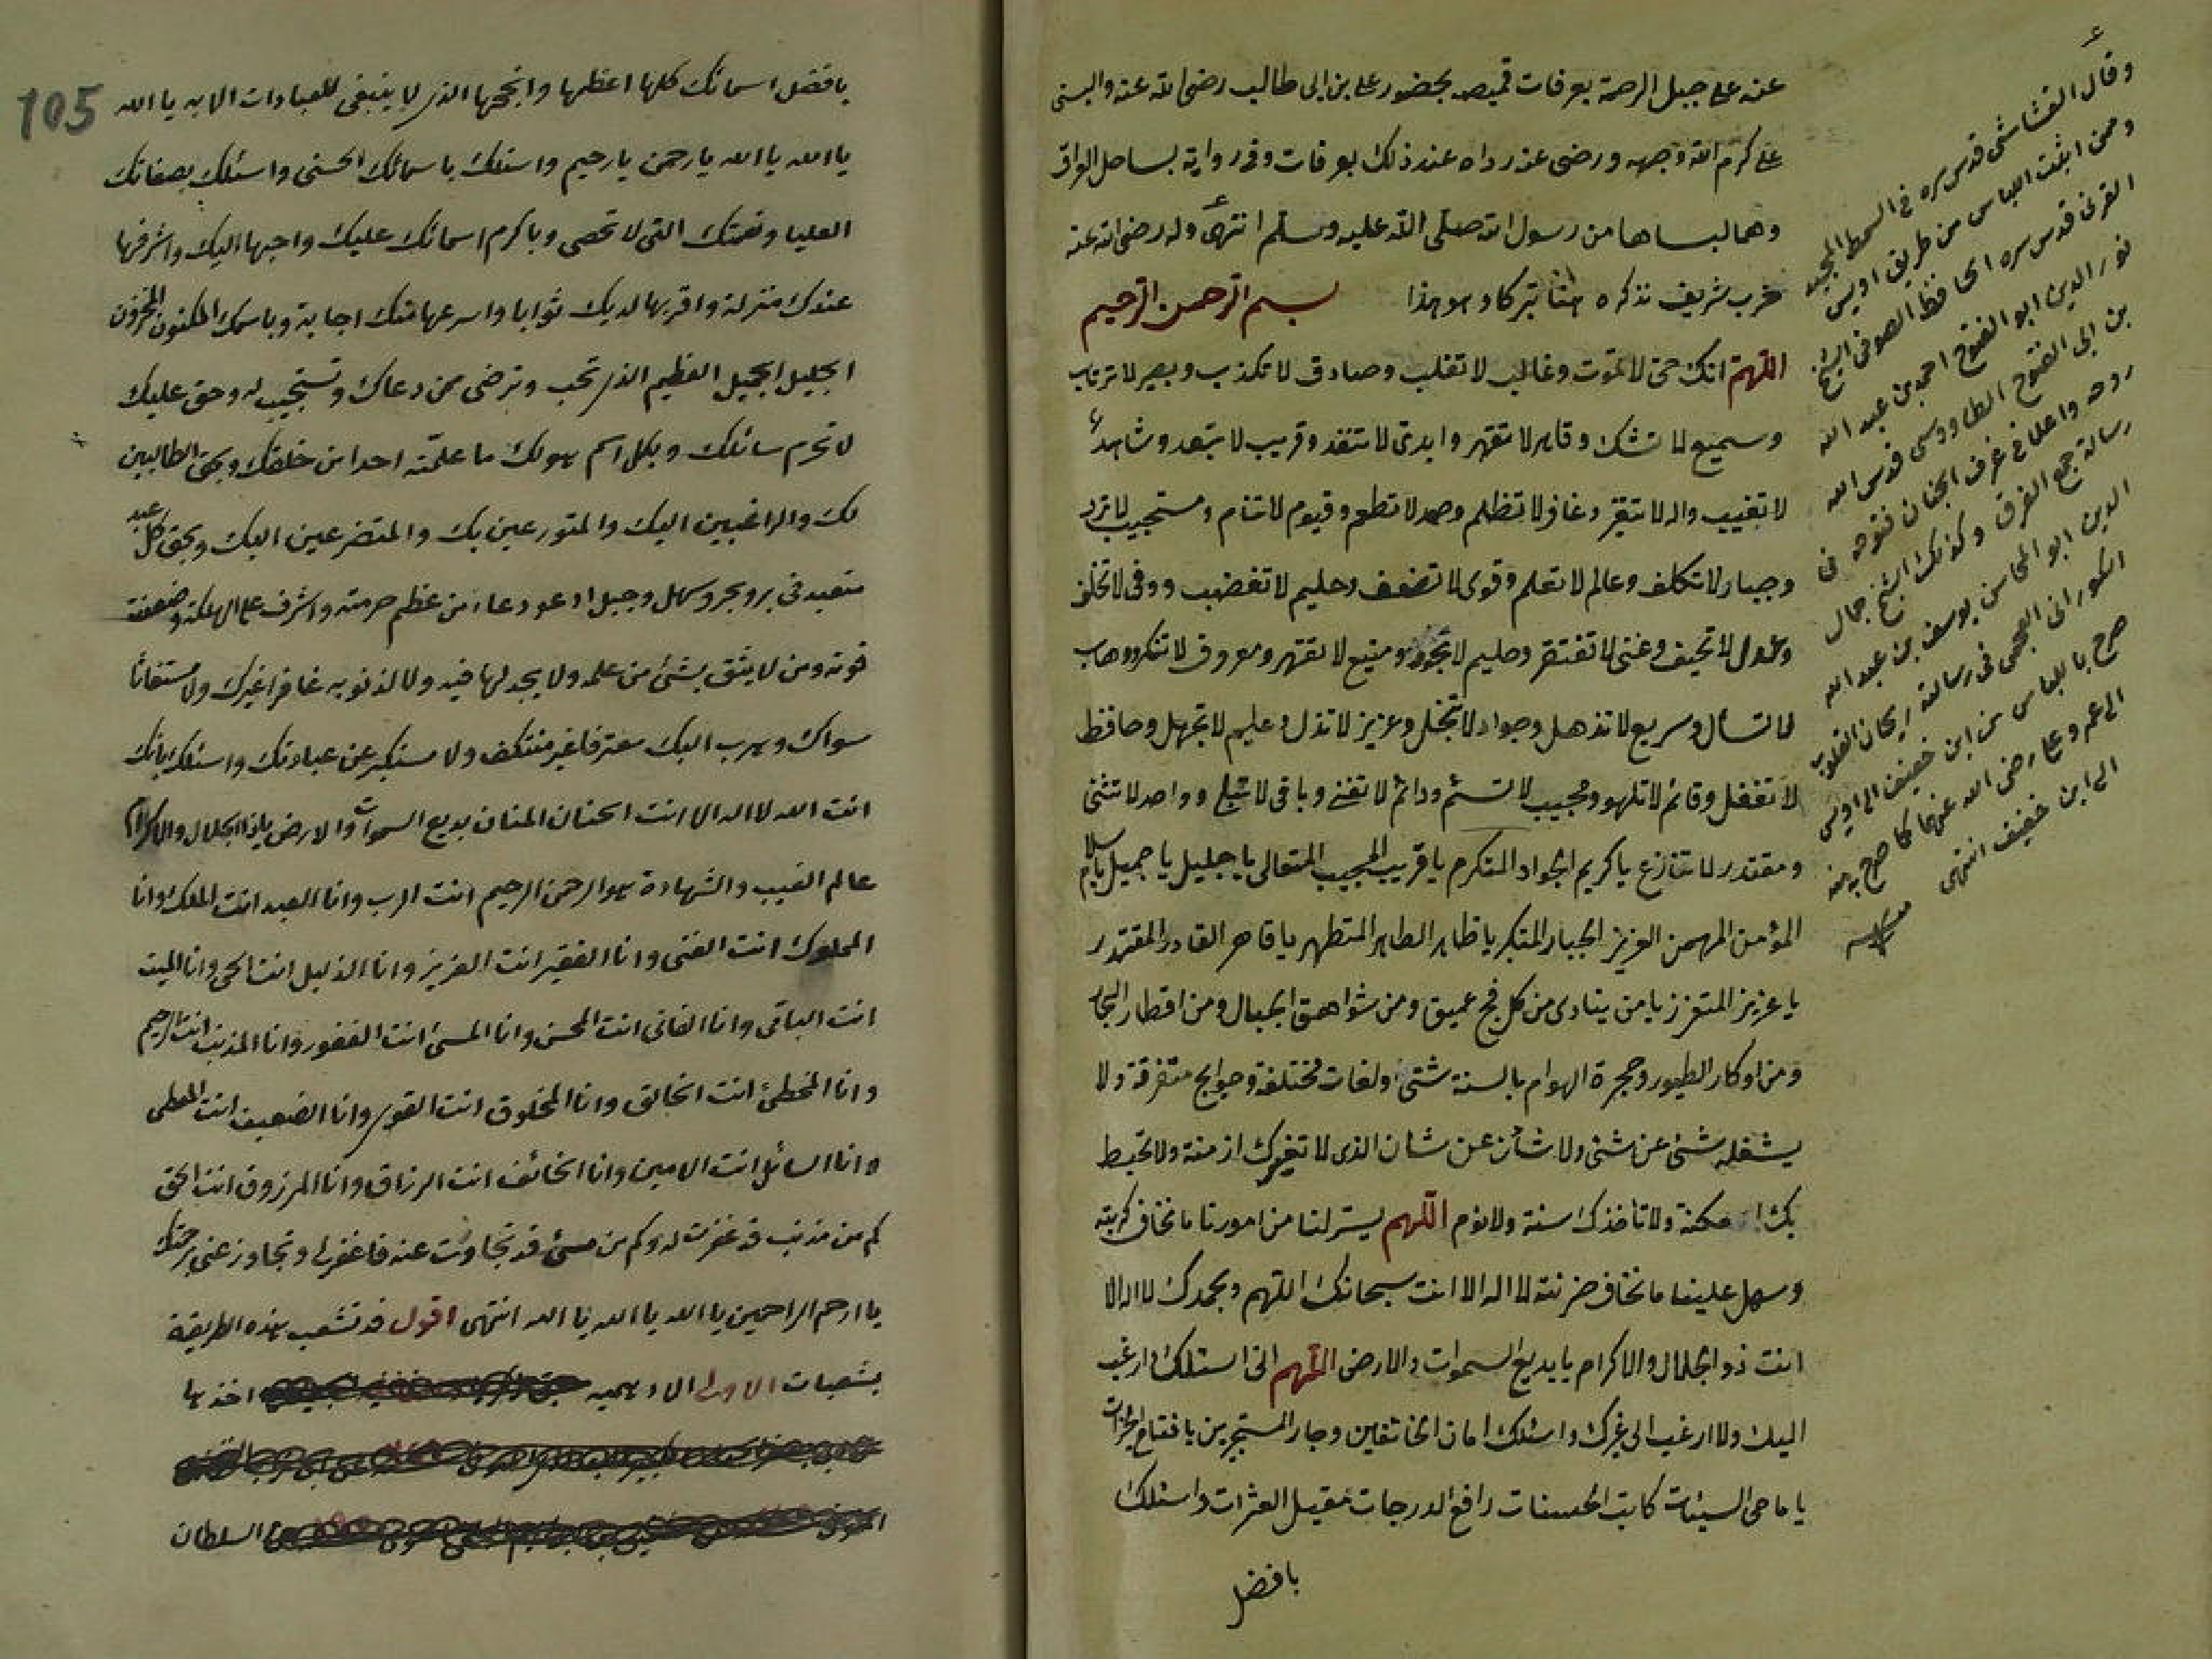 عنه على جبل الرحمة بعرفات قميصه بحضور على بن ابى طالب رضى الله عنه والبسنى
على كرم الله وجهه ورضى عنه رداه عند ذلك بعرفات وفى رواية بساحل الفرات
وهما لبساها من رسول الله صلى الله عليه وسلم انتهى وله رضى الله عنه
حزب شريف نذكره هنا تبركا وهو هذا بسم الله الرحمن الرحيم
اللهم انك حى لا تموت وغالب لا تغلب وصادق لا تكذب وبصير لا ترتاب
وسميع لا تشك وقاهر لا تقهر وابدى لا تنفد وقريب لا تبعد وشاهد
لا تغيب واله لا تتغير وغافر لا تظلم وصمد لا تطعم وقيوم لا تنام ومستجيب لا ترد
وجبار لا تكلف وعالم لا تعلم وقوى لا تضعف وحليم لا تغضب ووفى لا تخلف
وعدل لا تحيف وغنى لا تفتقر وحليم لا تجور ومنيع لا تقهر ومعروف لا تنكر ووهاب
لا تسأل وسريع لا تذهل وجواد لا تبخل وعزيز لا تذل وعليم لا تجهل وحافظ
لا تغفل وقائم لا تلهو ومجيب لا تسئم ودائم لا تفنى وباقى لا تبلى وواحد لا تثنى
ومقتدر لا تنازع يا كريم الجواد المتكرم يا قريب المجيب المتعالى يا جليل يا جميل يا سلام
المؤمن المهيمن العزيز الجبار المتكبر يا طاهر الطاهر المتطهر يا قاهر القادر المقتدر
يا عزيز المتعزز يا من ينادى من كل فج عميق ومن شواهق الجبال ومن اقطار البحار
ومن اوكار الطيور وحجرة الهوام بالسنة شتى ولغات مختلفة وحوايج متفرقة ولا
يشغله شئ عن شئ ولا شأن عن شان الذى لا تغيرك ازمنة ولا تحيط
بك امكنة ولا تاخذك سنة ولا نوم اللهم يسر لنا من امورنا ما نخاف كربته
وسهل علينا ما نخاف حزنته لا اله الا انت سبحانك اللهم وبحمدك لا اله الا
انت ذو الجلال والاكرام يا بديع السموات والارض اللهم انى اسئلك وارغب
اليك ولا ارغب الى غيرك واسئلك امان الخائفين وجار المستجيرين يا فتاح الخيرات
يا ماحى السيئات كاتب الحسنات رافع الدرجات مقيل العثرات واسئلك
بافضل
وقال القشاشى قدس سره فى السمط المجيد
وممن اثبت اللباس من طريق اويس
القرنى قدس سره الحافظ الصوفى الشيخ
نور الدين ابو الفتوح احمد بن عبد الله
بن ابى الفتوح الطاووسى قدس الله
روحه واعلا فى غرف الجنان فتوحه فى
رسالة جمع الفرق وكذلك الشيخ جمال
الدين ابو المحاسن يوسف بن عبد الله
الكورانى العجمى فى رسالته ريحان القلوب
صرح باللباس من ابن خفيف الى اويس
الى عمر وعلى رضى الله عنهما كما صرح به منه
الى ابن خفيف انتهى
105
بافضل اسمائك كلها اعظمها وانجحها الذى لا ينبغى للعبادات الا به يا الله
يا الله يا الله يا رحمن يا رحيم واسئلك باسمائك الحسنى واسئلك بصفاتك
العليا ونعمتك التى لا تحصى وباكرم اسمائك عليك واحبها اليك واشرفها
عندك منزلة واقربها لديك ثوابا واسرعها منك اجابة وباسمك المكنون المخزون
الجليل الجميل العظيم الذى تحب وترضى عمن دعاك وتستجيب له وحق عليك
لا تحرم سائلك وبكل اسم هو لك ما علمته احدا من خلقك وبحق الطالبين
لك والراغبين اليك والمتورعين بك والمتضرعين اليك وبحق كل عبد
متعبد فى بر وبحر وسهل وجبل ادعو دعاء من عظم جرمته واشرف على الهلكة وضعفت
قوته ومن لا يثق بشئ من علمه ولا يجد لها فيه ولا لذنوبه غافرا غيرك ولا مستغاثا
سواك وهرب اليك معترفا غير منتكف ولا مستكبر عن عبادتك واسئلك بانك
انت الله لا اله الا انت الحنان المنان بديع السموات والارض يا ذا الجلال والاكرام
عالم الغيب والشهادة هو الرحمن الرحيم انت الرب وانا العبد انت الملك وانا
المملوك انت الغنى وانا الفقير انت العزيز وانا الذليل انت الحى وانا الميت
انت الباقى وانا الفانى انت المحسن وانا المسئ انت الغفور وانا المذنب انت الرحيم
وانا المخطئ انت الخالق وانا المخلوق انت القوى وانا الضعيف انت المعطى
وانا السائل انت الامين وانا الخائف انت الرزاق وانا المرزوق انت الحق
كم من مذنب قد غفرت له وكم من مسئ قد تجاوزت عنه فاغفر لى وتجاوز عنى برحمتك
يا ارحم الراحمين يا الله يا الله يا الله انتهى اقول قد تشعب بهذه الطريقة
بشعبات الاولى الادهمية اخذها
السلطان